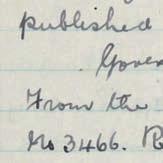 published
Gover
From the
No 3466. R